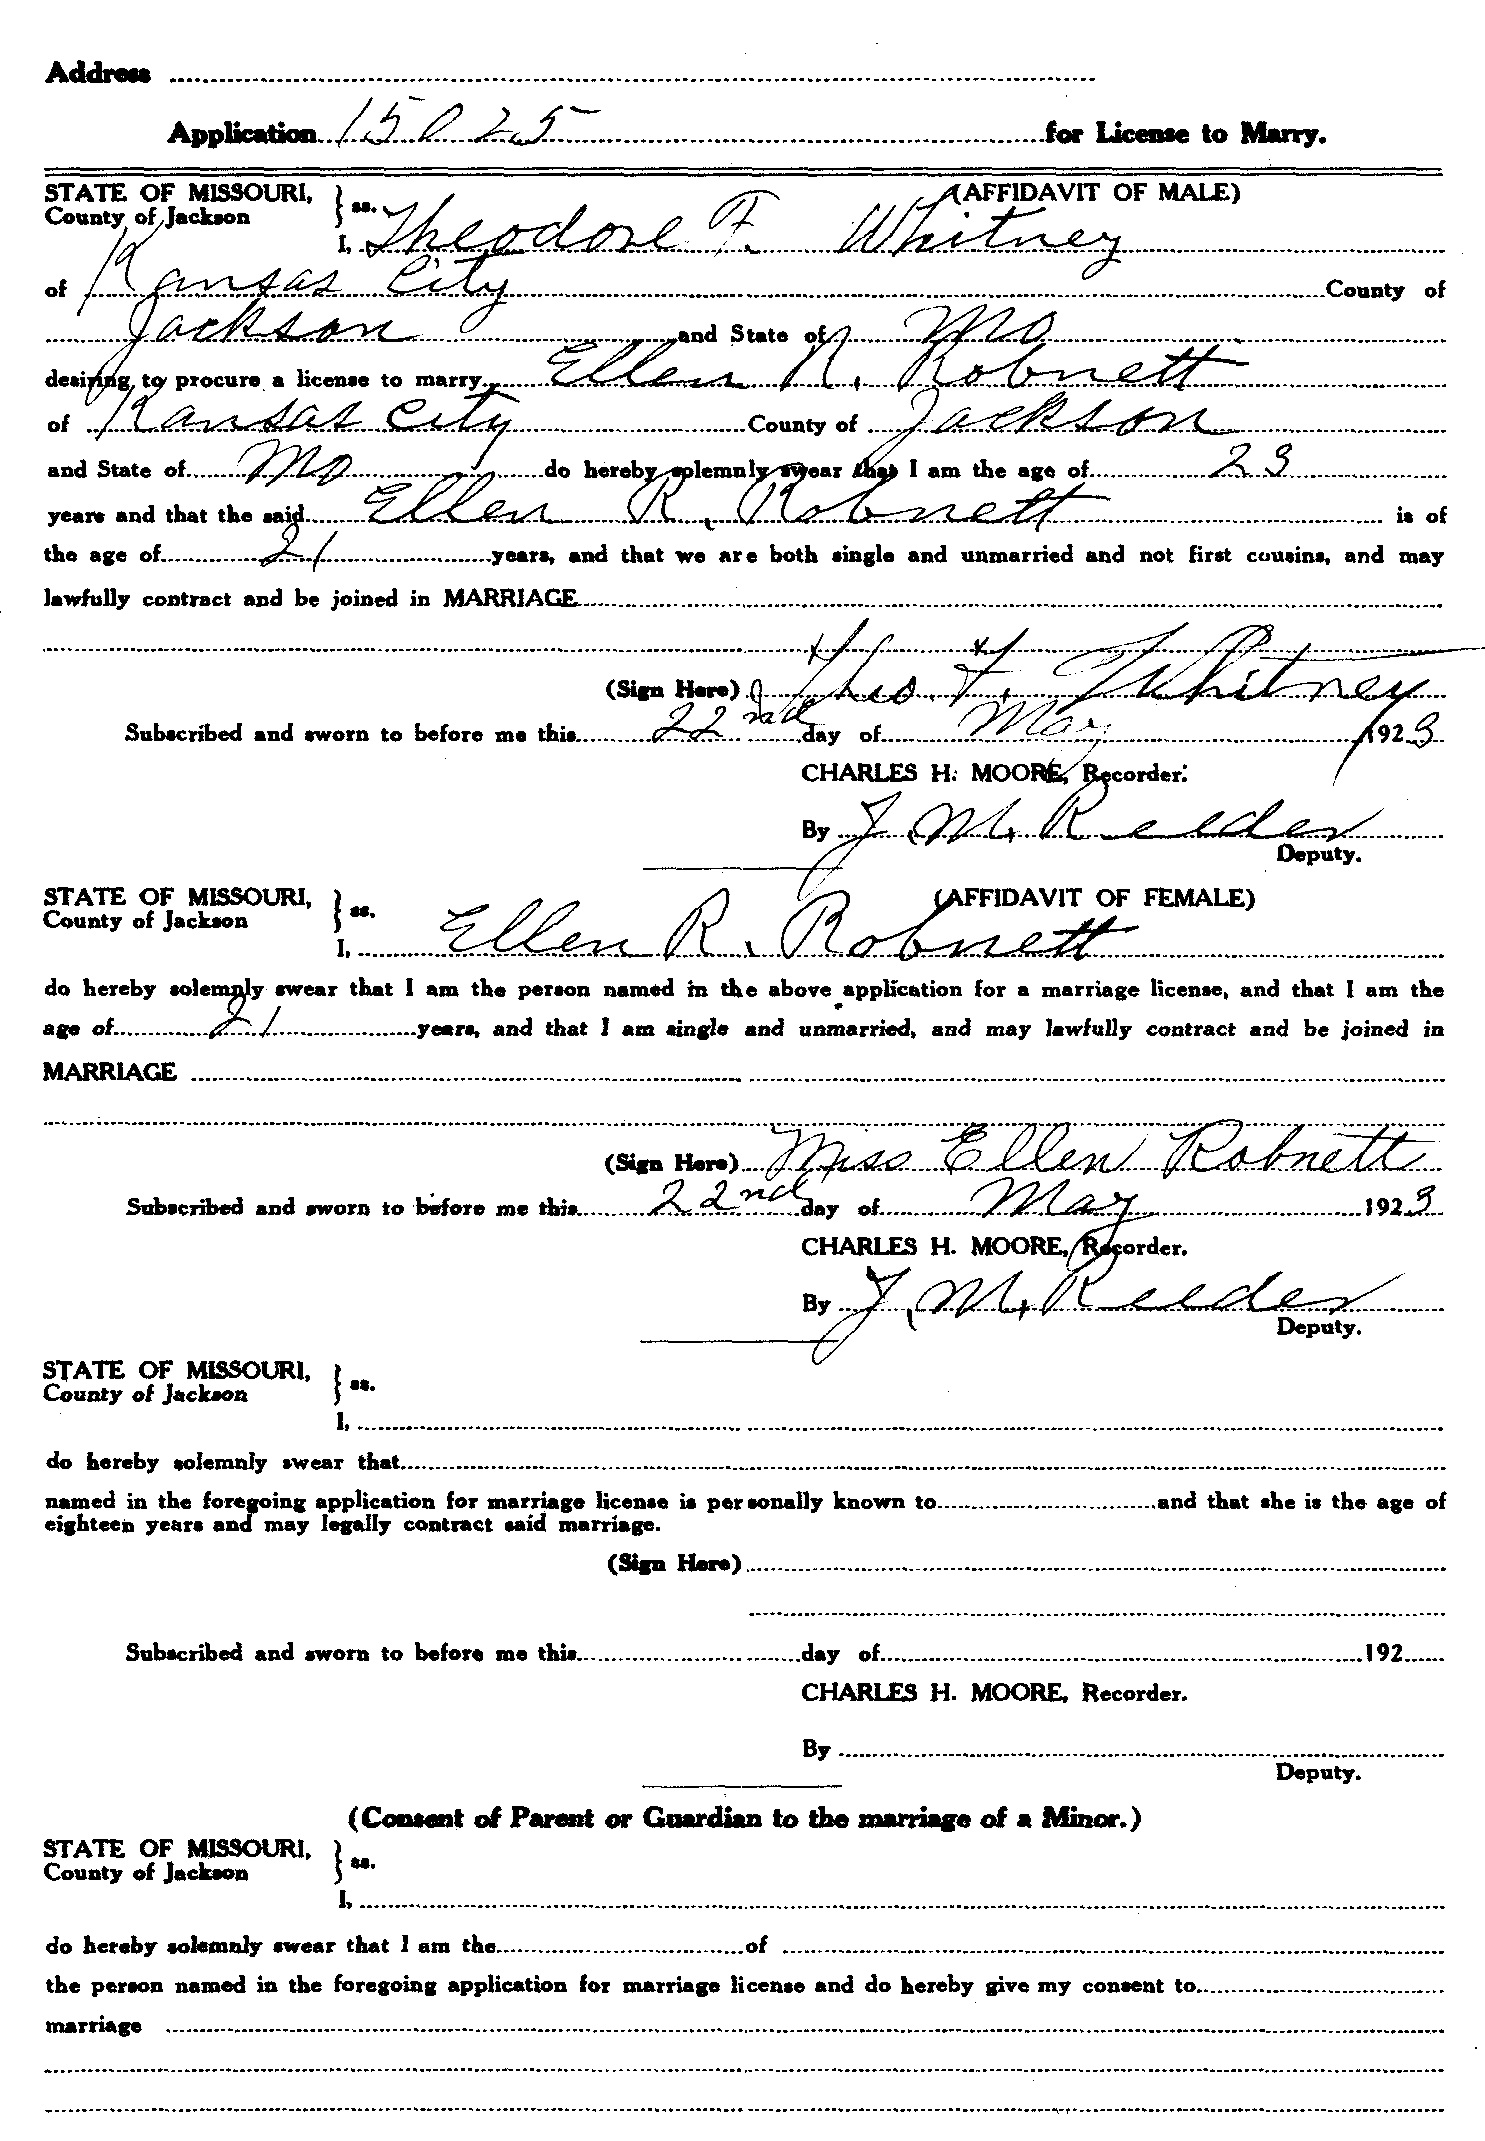 Address
Application 15025 for License to Marry.
STATE OF MISSOURI, } ss. (AFFIDAVIT OF MALE)
County of Jackson
I, Theodore F. Whitney
of Kansas City County of
Jackson and State of Mo
desiring to procure a license to marry Ellen R. Robnett
of Kansas City County of Jackson
and State of Mo do hereby solemnly swear that I am the age of 23
years and that the said Ellen R. Robnett is of
the age of 21 years, and that we are both single and unmarried and not first cousins, and may
lawfully contract and be joined in MARRIAGE
(Sign Here) Theo. F. Whitney
Subscribed and sworn to before me this 22nd day of May 1923
CHARLES H. MOORE, Recorder.
By J. M. Reeder
Deputy.
STATE OF MISSOURI, } ss. (AFFIDAVIT OF FEMALE)
County of Jackson
I, Ellen R. Robnett
do hereby solemnly swear that I am the person named in the above application for a marriage license, and that I am the
age of 21 years, and that I am single and unmarried, and may lawfully contract and be joined in
MARRIAGE
(Sign Here) Miss Ellen Robnett
Subscribed and sworn to before me this 22nd day of May 1923
CHARLES H. MOORE, Recorder.
By J. M. Reeder
Deputy.
STATE OF MISSOURI, } ss.
County of Jackson
I,
do hereby solemnly swear that
named in the foregoing application for marriage license is personally known to and that she is the age of
eighteen years and may legally contract said marriage.
(Sign Here)
Subscribed and sworn to before me this day of 192
CHARLES H. MOORE, Recorder.
By
Deputy.
(Consent of Parent or Guardian to the marriage of a Minor.)
STATE OF MISSOURI, } ss.
County of Jackson
I,
do hereby solemnly swear that I am the of
the person named in the foregoing application for marriage license and do hereby give my consent to
marriage